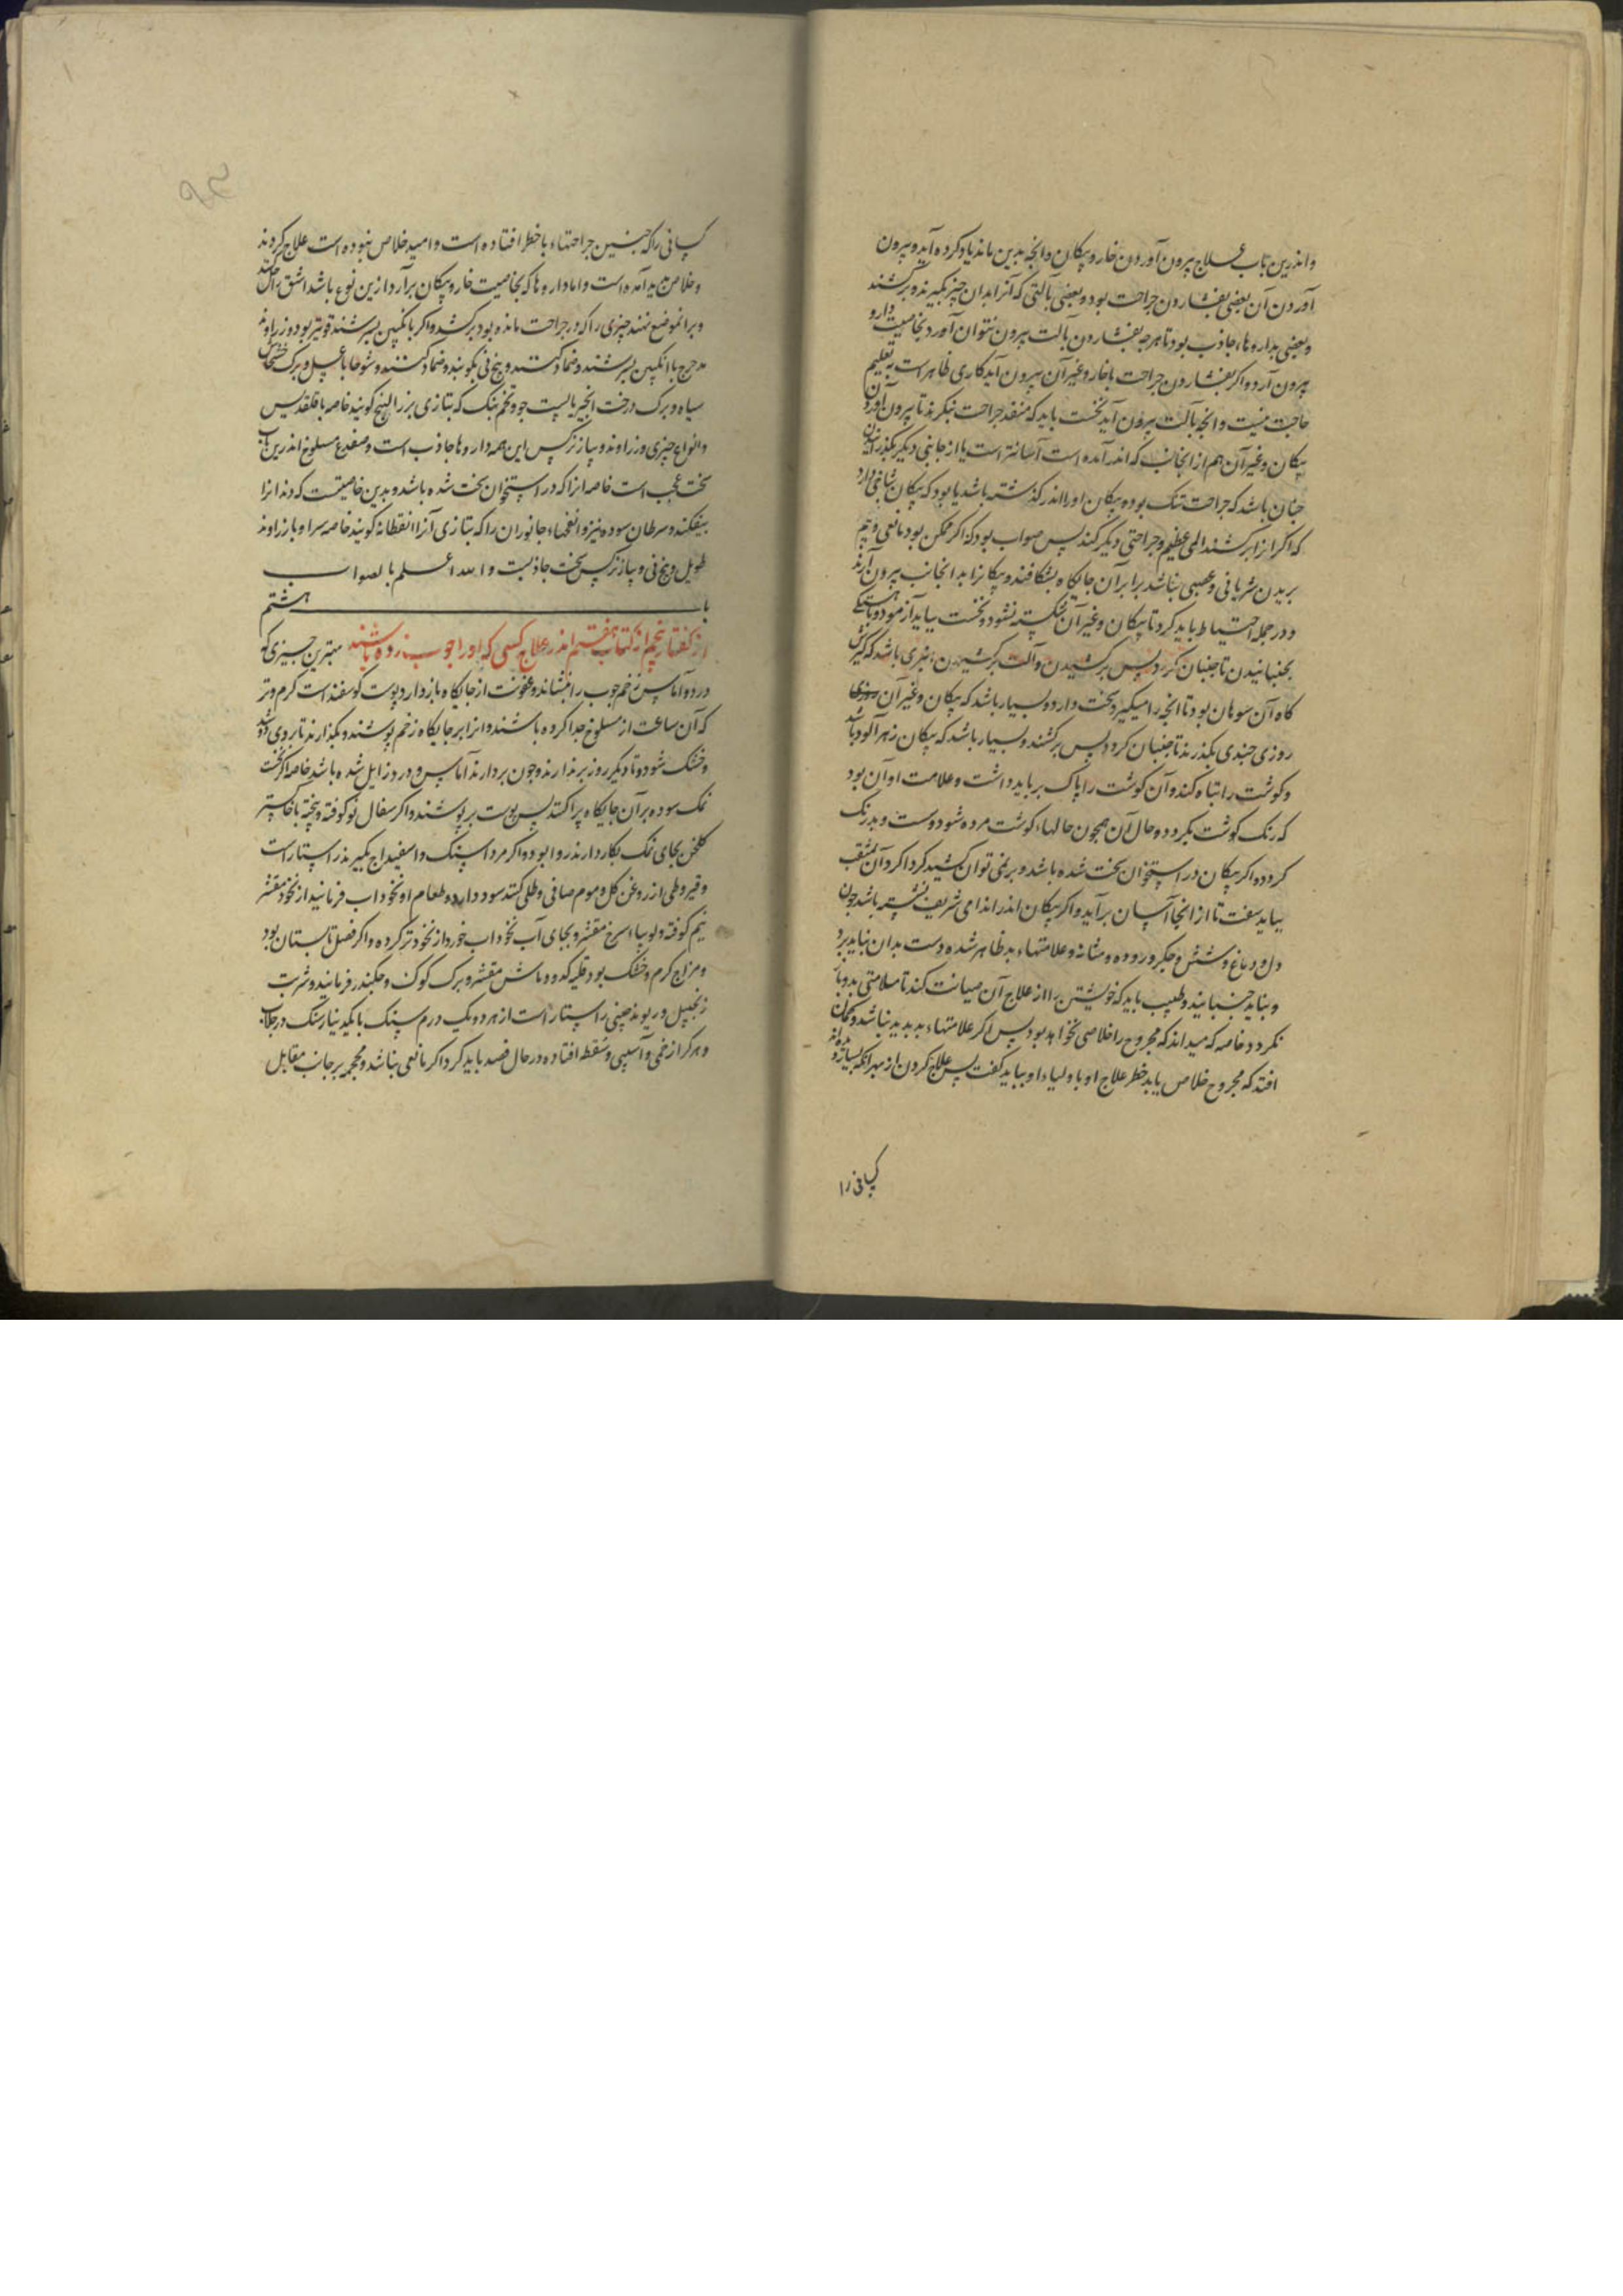 واندرین باب علاج بیرون آوردن خار و پیکان وانچه بدین ماند یاد کرده آید و بیرون
آوردن آن بعضی بفشاردن جراحت بود و بعضی بآلتی که آنرا بدان چیز بگیرند و برکشند
و بعضی بداروها، جاذب بود تا هرچه بفشاردن و بآلت بیرون نتوان آورد بخاصیت دارو
بیرون آرد و اگر بفشاردن جراحت یا خار و غیر آن بیرون آید کاری ظاهر است بتعلیم
حاجت نیست وانچه بآلت بیرون آید نخست باید که منفذ جراحت بنگرند تا بیرون آوردن
پیکان و غیر آن هم از انجانب که اندر آمده است آسانتر است یا از جانبی دیگر بگذرانیدن
چنان باشد که جراحت تنک بوده پیکان اورا اندر گذشته باشد یا بود که پیکان شاخی دارد
که اگر انرا برکشند المی عظیم و جراحتی دیگر کند پس صواب بود که اگر ممکن بود و مانعی و بیم
بریدن شریانی و عصبی نباشد برابر آن جایگاه بشکافند و پیکانرا بدانجانب بیرون آرند
و در جمله احتیاط باید کرد تا پیکان و غیر آن شکسته نشود و نخست بباید آزمود و باهستگی
بجنبانیدن تا جنبان گردد پس برکشیدن و آلت برکشیدن، انبری باشد که گیرش
گاه آن سوهان بود تا انچه را میگیرد سخت دارد و بسیار باشد که پیکان و غیر آن
روزی چندی بگذرند تا جنبان گردد پس برکشند و بسیار باشد که پیکان زهر آلود باشد
و گوشت را تباه کند و آن گوشت را پاک بر باید داشت و علامت او آن بود
که رنک گوشت بگردد و حال آن همچون حالهاء گوشت مرده شود و سست و بدرنک
گردد و اگر پیکان در استخوان سخت شده باشد و برنمی توان کشید گرداگرد آن بمثقب
بباید سفت تا از انجا آسان برآید و اگر پیکان اندر اندامی شریف نشسته باشد چون
دل و دماغ و شش و جگر و روده و مثانه و علامتهاء بد ظاهر شده دست بدان نباید برد
و نباید جنبانید و طبیب باید که خویشتن را از علاج آن صیانت کند تا ملامتی بدو باز
نگردد خاصه که میداند که مجروح را خلاصی نخواهد بود پس اگر علامتهاء بد پدید نباشد و گمان
افتد که مجروح خلاص یابد خطر علاج او با ولیاء او بباید گفت پس علاج کردن از بهر آنکه بسیار
کسانی را
کسانی را که چنین جراحتهاء با خطر افتاده است و امید خلاص نبوده است علاج کردند
و خلاص پدید آمده است و اما داروها که بخاصیت خار و پیکان برآرد ازین نوع باشد اشق
و برانموضع نهند چیزی را که در جراحت مانده بود برکشد و اگر بانگبین بسرشند قویتر بود و زراوند
مدحرج با انگبین بسرشند و ضماد کنند و بیخ نی بکوبند و ضماد کنند و شوخا با عسل و برک خشخاش
سیاه و برک درخت انجیر با پست جو و تخم بنک که بتازی بزر البنج گویند خاصه با قلقدیس
و انواع چیزی و زراوند و پیاز نرگس این همه داروها جاذب است و ضفدع مسلوخ اندرین باب
سخت عجب است خاصه انرا که در استخوان سخت شده باشد و بدین خاصیتست که دندانرا
بیفکند و سرطان سوده نیز و انفحهاء جانوران را که بتازی آنرا انفحه گویند خاصه سرا و با زراوند
طویل و بیخ نی و پیاز نرگس سخت جاذبست و الله اعلم بالصواب
باب هشتم
از گفتار پنجم از کتاب هفتم اندر علاج کسی که او را چوب زده باشند بهترین چیزی که
درد و آماس زخم چوب را بنشاند و عفونت از جایگاه بازدارد پوست گوسفند است گرم و تر
که آن ساعت از مسلوخ جدا کرده باشند و انرا بر جایگاه زخم پوشند و بگذارند تا بر وی
و خشک شود و تا دیگر روز برندارند و چون بردارند آماس و درد زایل شده باشد خاصه اگر نخست
نمک سوده بر آن جایگاه پراکنند پس پوست برپوشند و اگر سفال نو کوفته و بیخته با خاکستر
گلخن بجای نمک بکار دارند روا بود و اگر مرداسنک و اسفیداج بگیرند راستاراست
و قیروطی از روغن گل و موم صافی و طلی کنند سود دارد و طعام او نخوداب فرمایند از نخود مقشر
نیم کوفته و لوبیاء سرخ مقشر و بجای آب نخوداب خورد از نخود تر کرده و اگر فصل تابستان بود
و مزاج گرم و خشک بود قلیه کدو و ماش مقشر و برک کوک و چکندر فرمایند و شربت
زنجبیل و ریوند چینی راستاراست از هر دو یک درم سنک با یکدینار سنک در جلاب
و هر کرا زخمی و آسیبی و سقطه افتاده در حال فصد باید کرد اگر مانعی نباشد و محجمه بر جانب مقابل